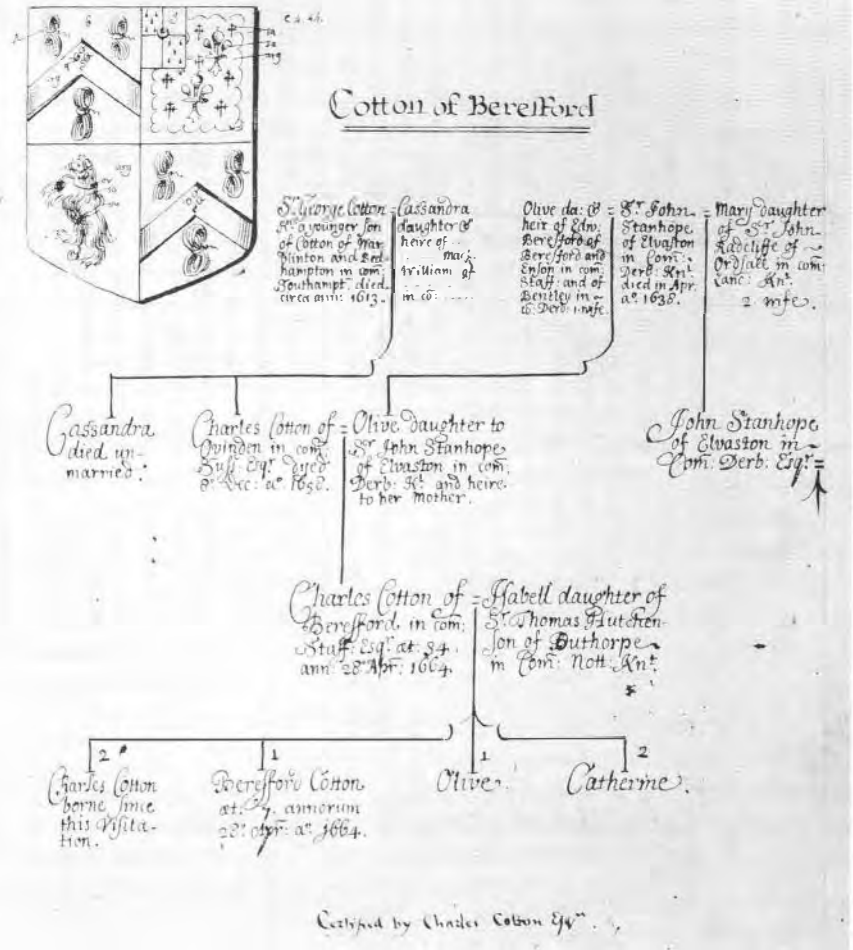 Cotton of Beresford
Sr. George Cotton = Cassandra
Kt. a younger son
of Cotton of War
blinton and Bed-
hampton in com:
Southampt: died
circa ann: 1613.
daughter &
heire of ..
.... marj.
William of
in co: .....
Olive da: & =
heir of Edw:
Beresford of
Beresford and
Enson in com:
Staff: and of
Bentley in
co: Derb: 1. wife.
Sr. John =
Stanhope
of Elvaston
in Com:
Derb: Knt.
died in Apr.
ao. 1638.
Mary daughter
of Sr. John
Radcliffe of
Ordsall in com:
Lanc: Knt.
2. wife.
Cassandra
died un-
married.
Charles Cotton of =
Ovinden in com:
Suss: Esqr. dyed
8o. Dec: ao. 1658.
Olive daughter to
Sr. John Stanhope
of Elvaston in com:
Derb: Kt. and heire
to her Mother.
John Stanhope
of Elvaston in
Com: Derb: Esqr. =
Charles Cotton of =
Beresford, in com:
Staff: Esqr. æt: 34.
ann: 28o Apr: 1664.
Isabell daughter of
Sr. Thomas Hutchen-
son of Outhorpe
in Com: Nott: Knt.
2
Charles Cotton
borne since
this Visita-
tion.
1
Beresford Cotton
æt: 7. annorum
28o. Apr: ao. 1664.
1
Olive.
2
Catherine.
Certified by Charles Cotton Esqr.